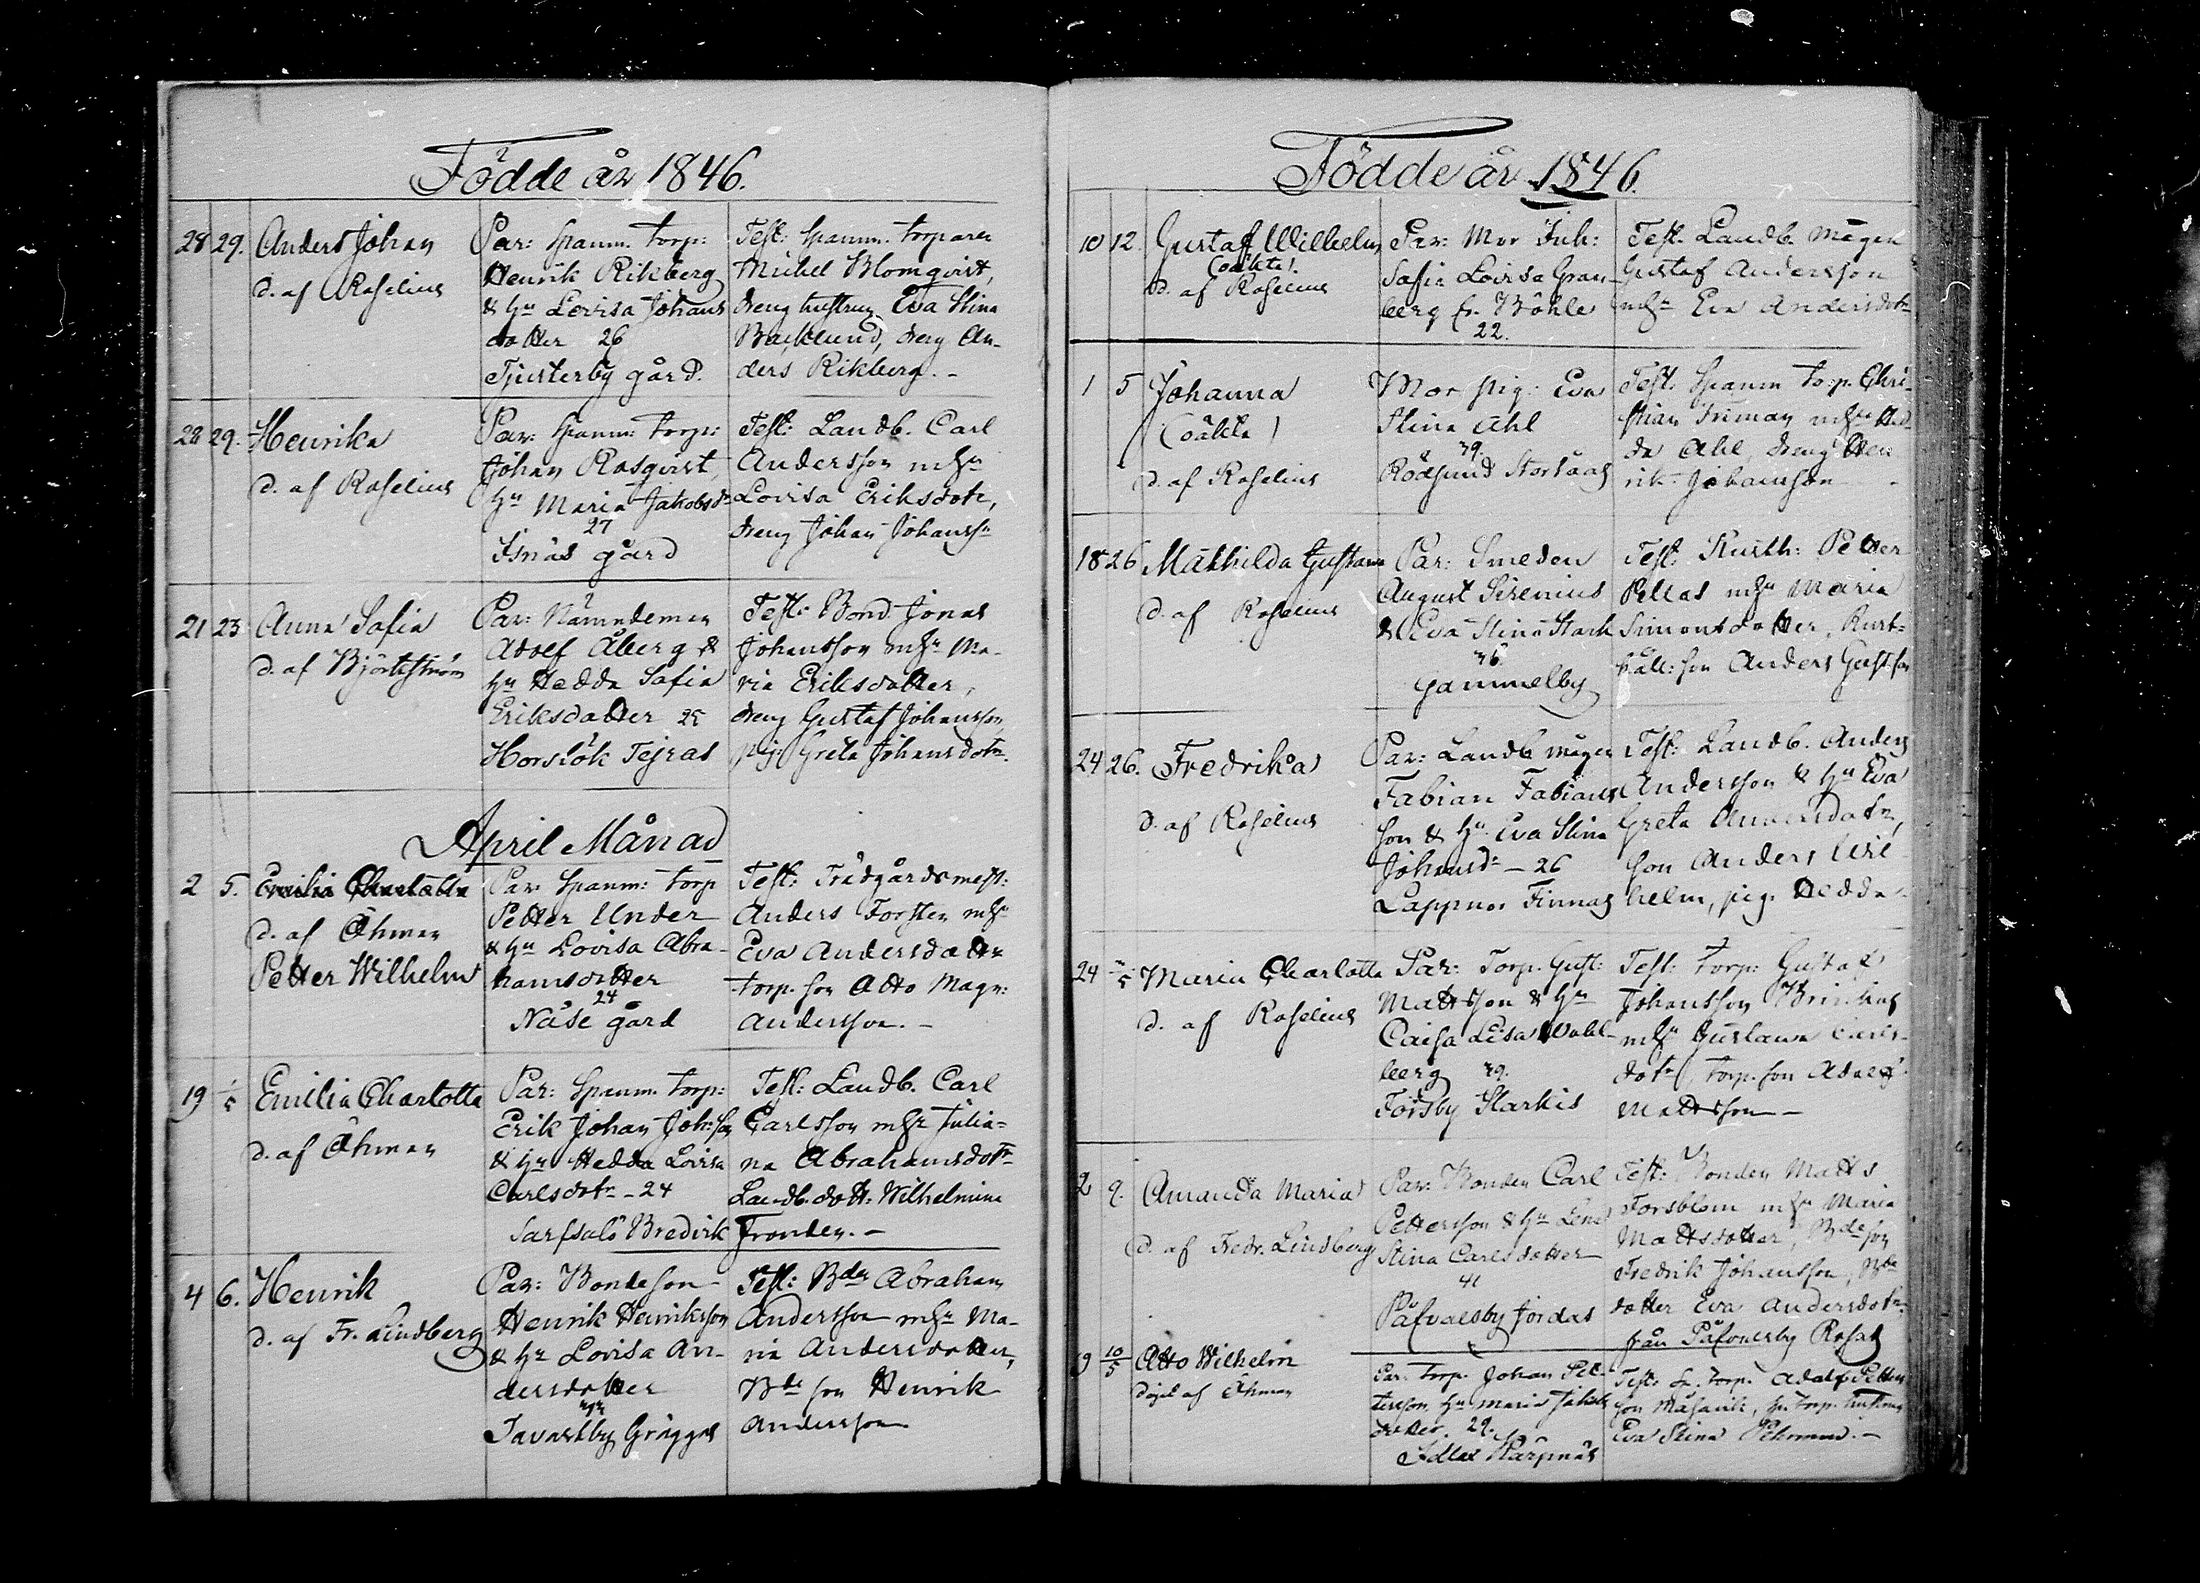 Födde år 1846.
28 29. Anders Johan
d. af Roselius
Par: Spanm. torp:
Henrik Rikberg
& Hu Lovisa Johans
dotter 26
Tjusterby gård.
Test: Spanm. torparen
Michel Blomqvist,
dreng hustrun Eva Stina
Backlund, dreng An-
ders Rikberg. -
28 29. Henrika
d. af Roselius
Par: Spanm: torp:
Johan Rosqvist
Hu Maria Jakobsdr
27
Isnäs gård
Test: Landb. Carl
Andersson mhu
Lovisa Eriksdotr,
dreng Johan Johanss
21 23 Anna Sofia
d. af Björkström
Par: Nämndeman
Adolf Åberg &
Hu Hedda Sofia
Eriksdotter 25
Horslök Tejras
Test: Bond. Jonas
Johansson mhu Ma-
ria Eriksdotter,
dreng Gustaf Johansson
pig: Greta Johansdotr.
April Månad
2 5. Emilia Charlotta
d. af Öhman
Petter Wilhelm
Par: Spanm: torp
Petter Under
& Hu Lovisa Abra-
hamsdotter
24
Näse gård
Test: Trädgårdsmest:
Anders Forsten mhu
Eva Andersdotter
torp. son Otto Magn:
Andersson. -
19 1/5 Emilia Charlotta
d. af Öhman
Par: Spanm. torp:
Erik Johan Joh:son
& Hu Hedda Lovisa
Carlsdotr - 24
Sarfsalö Bredvik
Test: Landb. Carl
Carlsson mhu Julia-
na Abrahamsdotr
Landb. dott. Wilhelmina
Fronden. -
4 6. Henrik
d. af Fr. Lindberg
Par: Bondeson
Henrik Henriksson
& Hu Lovisa An-
dersdotter
Tavastby Greggas
Test: Bdn Abraham
Andersson mhu Ma-
ria Andersdotter,
Bde son Henrik
Andersson
Födde år 1846.
10 12. Gustaf Wilhelm
(oäkta).
d. af Roselius
Par: Mor Inh:
Sofia Lovisa Gran-
berg fr. Böhle
22.
Test. Landb. mågen
Gustaf Andersson
mhu Eva Andersdotr
1 5 Johanna
(oäkta)
d. af Roselius
Mor pig: Eva
Stina Ahl
39.
Rödsund Storsaas
Test: Spanm torp. Chri-
stian Friman mhu Hed-
da Ahl, dreng Hen
rik Johansson
18 26 Mathilda Gustava
d. af Roselius
Par: Smeden
August Sirenius
& Eva Stina Stark
36
Gammelby
Test: Rusth: Petter
Pellas mhu Maria
Simonsdotter, Rust-
håll: son Anders Gust:son
24 26. Fredrika
d. af Roselius
Par: Landb mågen
Fabian Fabians
son & Hu Eva Stina
Johansdr - 26
Lappnor Finnas
Test: Landb. Anders
Andersson & Hu Eva
Greta Andersdotr,
son Anders Wil
helm, pig. Hedda.
24 Maria Charlotta
d. af Roselius
Par: Torp. Gust:
Mattsson & Hu
Caisa Lisa Wahl-
berg 39.
Forsby Starkis
Test: torp: Gustaf
Johansson
mhu Gustava Carls-
dotr, torp. son Adolf
Mattsson -
2 9. Amanda Maria
d. af Fredr. Lindberg
Par: Bonden Carl
Pettersson & Hu Lena
Stina Carlsdotter
41
Påfvalsby Jordas
Test: Bonden Matts
Forsblom mhu Maria
Mattsdotter, Bde son
Fredrik Johansson, Bde
dotter Eva Andersdotr.
från Påfvalsby Rosas
9 10/5 Otto Wilhelm
döpt af Öhman
Par: torp. Johan Pet-
tersson Hu Maria Jakobs
dotter. 29.
Idlax Kärpnäs
Test: Sp. torp. Adolf Petters
son Måsarvik, Sp. torp. hustrun
Eva Stina Öhman. -